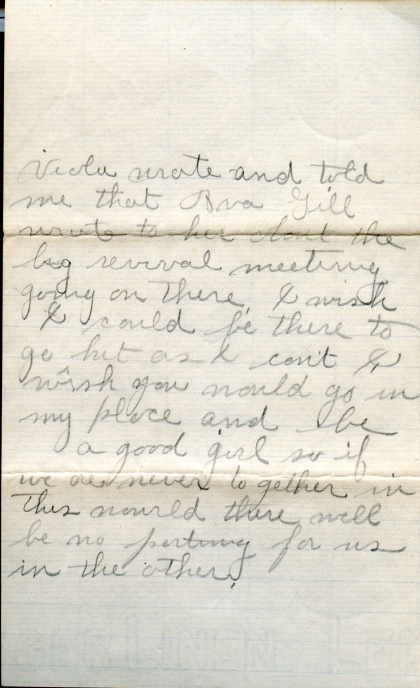 Viola wrote and told
me that Ava Gill
wrote to her about the
big revival meeting
going on there, I wish
I could be there to
go but as I can't I
wish you would go in
my place and be
a good girl so if
we are never to gether in
this wourld there will
be no parting for us
in the other.